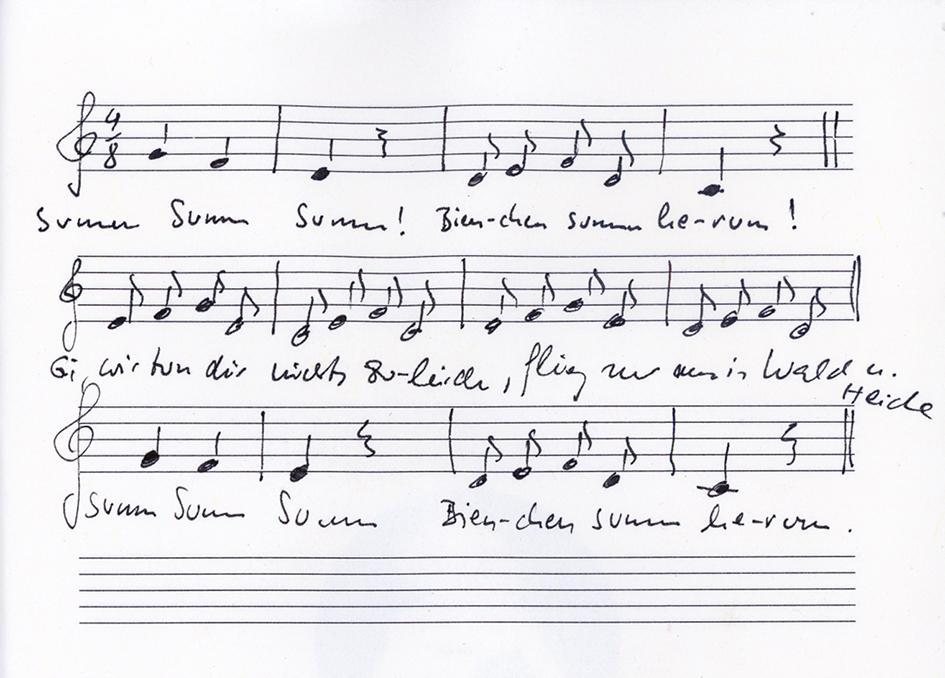 4/8
Summ Summ Summ! Bien-chen summ he-rum!
Ei, wir tun dir nichts zu-leide, flieg nur aus in Wald u.
Heide
Summ Summ Summ Bien-chen summ he-rum.